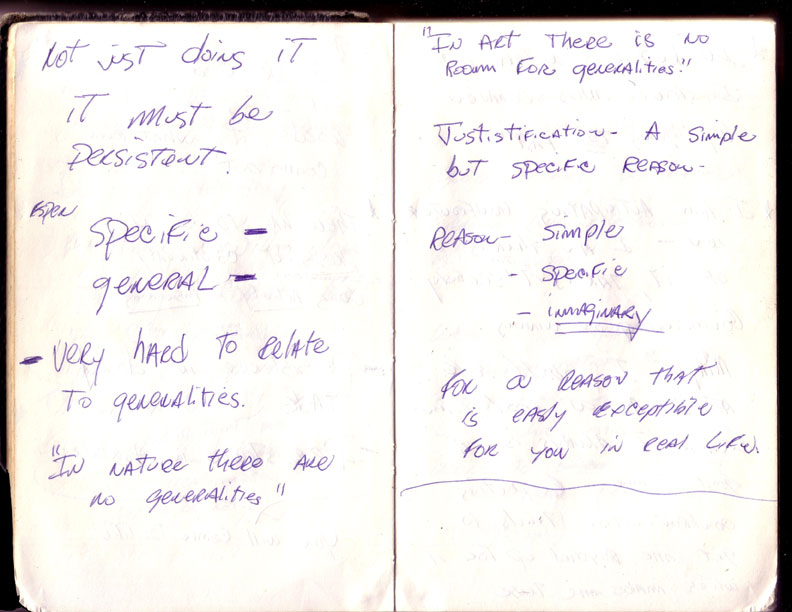 Not just doing it
it must be
persistent.
specific –
general –
– very hard to relate
to generalities.
"In nature there are
no generalities"
"In Art there is no
Rooum for generalities."
Justistification – A simple
but specific reason –
Reason – simple
– specific
– immaginary
for a reason that
is easly exceptible
for you in real life.